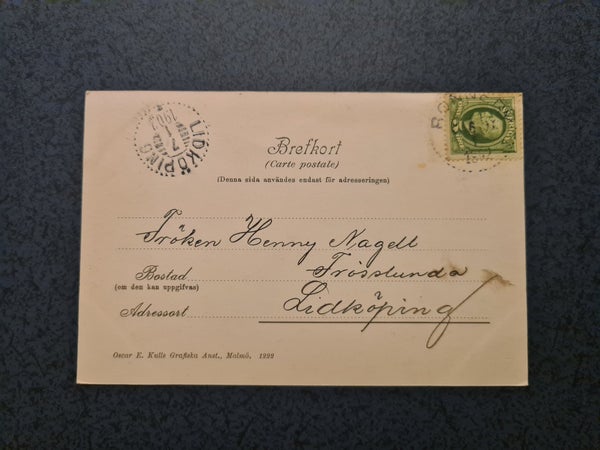 LIDKÖPING
1902
7
1
SVERIGE
Brefkort
(Carte postale)
(Denna sida användes endast för adresseringen)
Fröken Henny Nagell
Bostad
Frösslunda
(om den kan uppgifvas)
Lidköping
Adressort
Oscar E. Kulls Grafiska Anst., Malmö. 1999